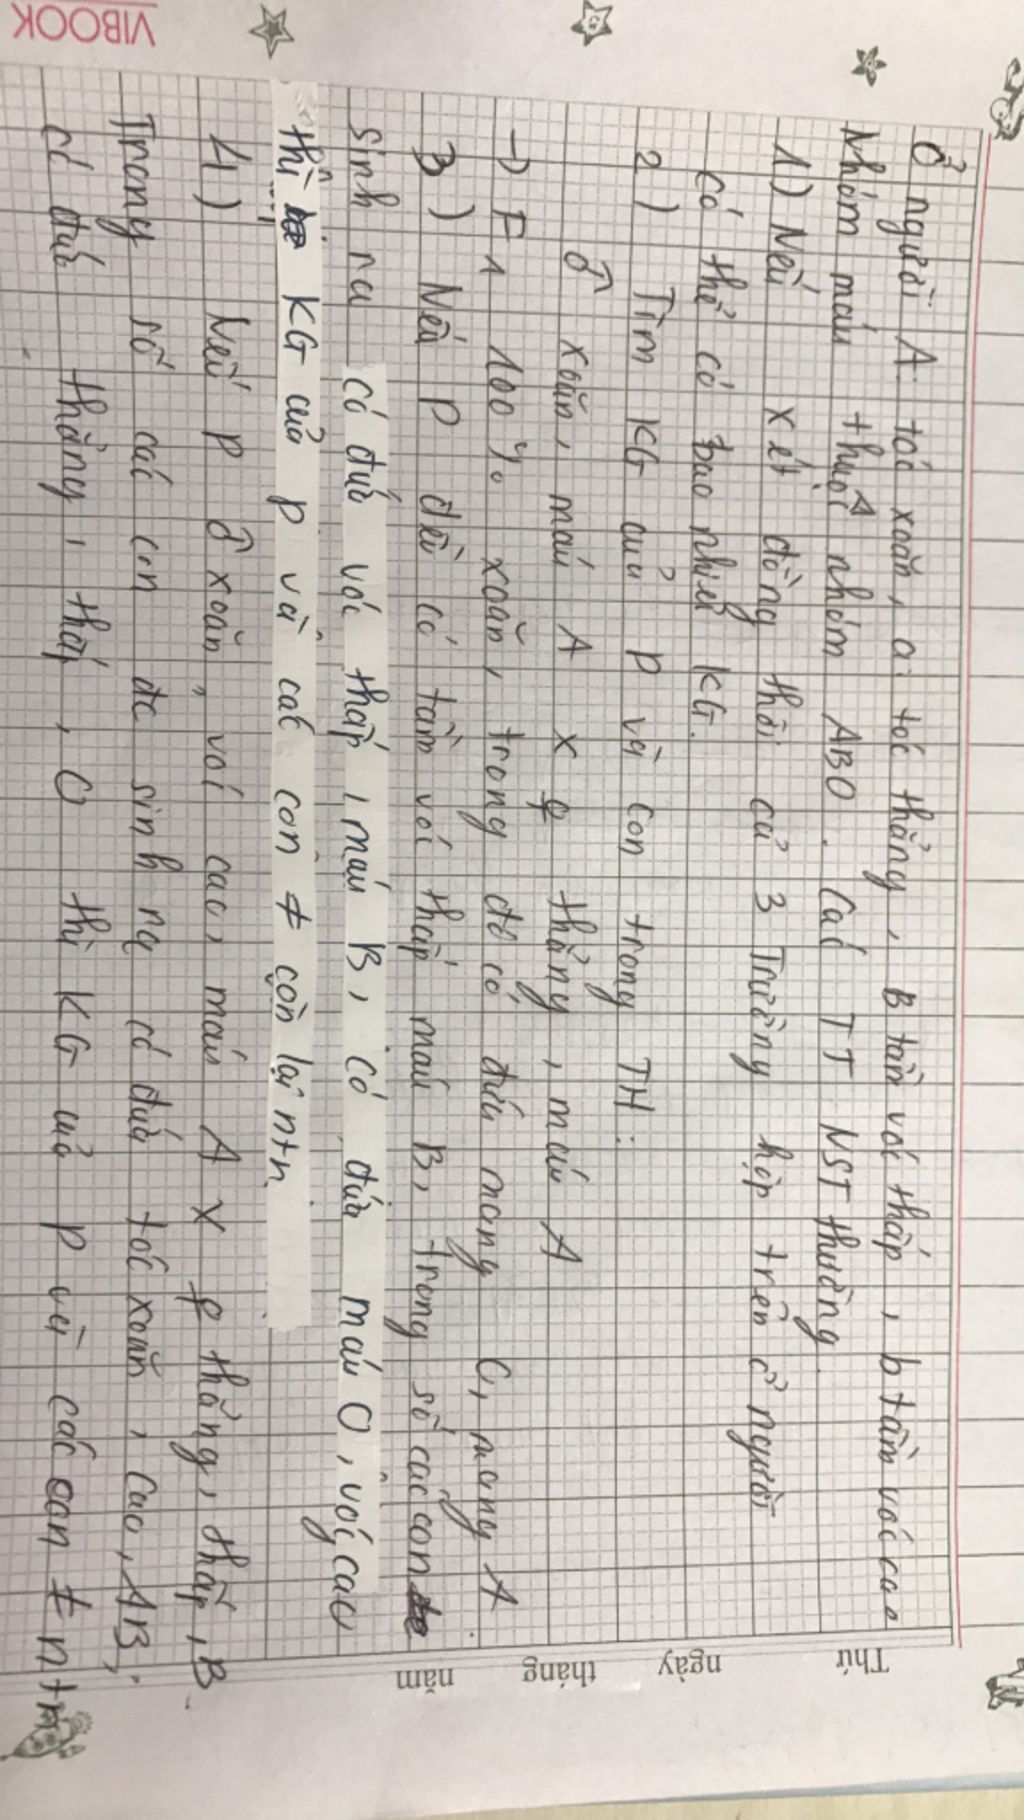 VIBOOK
Thứ ngày tháng năm
Ở người A: tóc xoăn, a: tóc thẳng, B tầm vóc thấp, b tầm vóc cao
Nhóm máu thuộc nhóm ABO. Các TT NST thường.
1) Nếu xét đồng thời cả 3 Trường hợp trên ở người
có thể có bao nhiêu KG.
2) Tìm KG của P và con trong TH:
♂ xoăn, máu A x ♀ thẳng, máu A
→ F1 100% xoăn, trong đó có đứa mang O, mang A
3) Nếu P đều có tầm vóc thấp máu B, trong số các con
sinh ra có đứa vóc thấp, máu B, có đứa máu O, vóc cao
thì KG của P và các con ≠ còn lại ntn
4) Nếu P ♂ xoăn, vóc cao, máu A x ♀ thẳng, thấp, B
Trong số các con đc sinh ra có đứa tóc xoăn, cao, AB;
có đứa thẳng, thấp, O thì KG của P và các con ≠ ntn